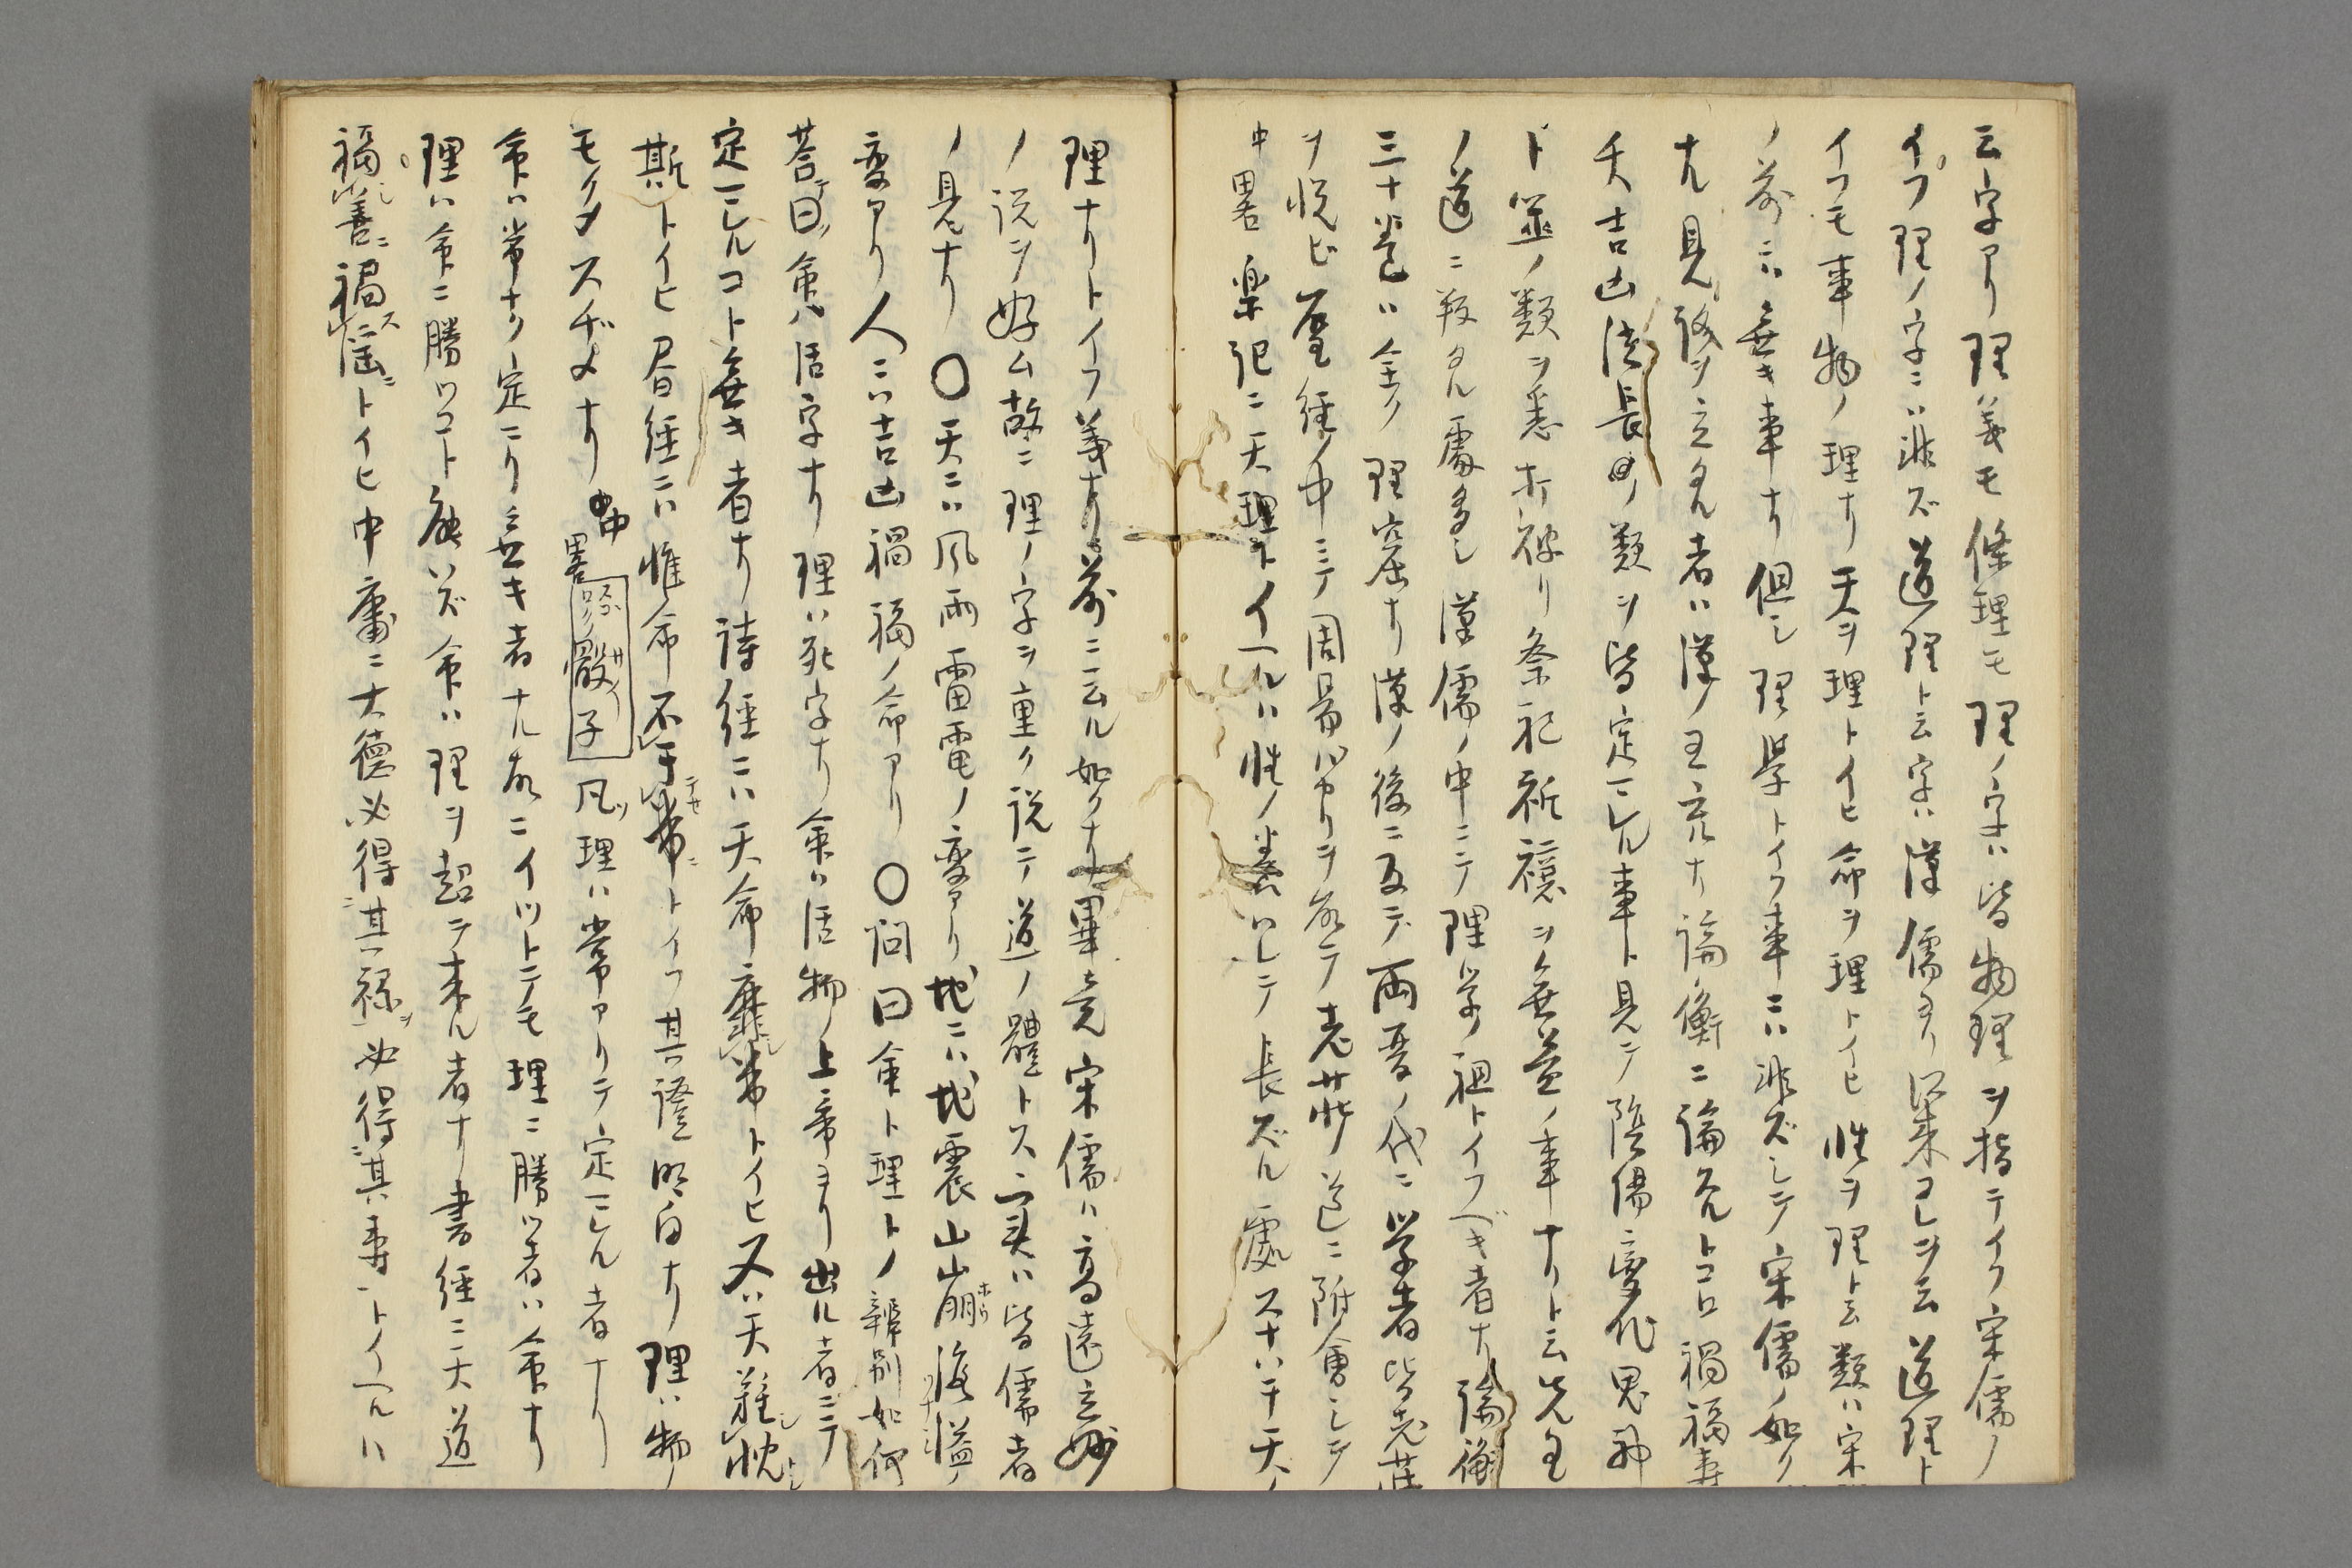 云字アリ理義モ條理モ理ノ字ハ皆物理ヲ指テイフ宋儒ノ
イフ理ノ字ニハ非ズ道理ト云字ハ漢儒ヨリ以来コレヲ云道理ト
イフモ事物ノ理ナリ天ヲ理トイヒ命ヲ理トイヒ性ヲ理ト云類ハ宋
ノ前ニハ無キ事ナリ但シ理学トイフ事ニハ非ズシテ宋儒ノ如ク
ナル見識ヲ立タル者ハ漢ノ王充ナリ論衡ニ論ズルトコロ禍福寿
夭吉凶消長ノ類ヲ皆定マレル事ト見テ陰陽変化鬼神
ト筮ノ類ヲ悉ク打破リ祭祀祈禳ヲ無益ノ事ナリト云先王
ノ道ニ叛タル処多シ漢儒ノ中ニテ理学ノ祖トイフベキ者ナリ論衡
三十巻ハ全ク理窟ナリ漢ノ後ニ及デ両晋ノ代ニ学者皆老荘
ヲ悦ビ聖経ノ中ニテ周易バカリヲ取テ老荘ノ道ニ附會シテ
中畧楽記ニ天理トイヘルハ性ノ善ハシテ長ズル處スナハチ天ノ
理ナリトイフ義ナリ前ニ云ル如クナリ畢竟宋儒ハ高遠玄妙
ノ説ヲ好ム故ニ理ノ字ヲ重ク説テ道ノ體トス実ハ皆儒者
ノ見ナリ〇天ニハ風雨雷電ノ変アリ地ニハ地震山崩海溢ノ
変アリ人ニハ吉凶禍福ノ命アリ〇問曰命ト理トノ辨別如何
荅曰命ハ活字ナリ理ハ死字ナリ命ハ活物ノ上帝ヨリ出ル者ニテ
定マレルコト無キ者ナリ詩経ニハ天命靡常トイヒ又ハ天難忱
斯トイヒ書経ニハ惟命不于常トイフ其證明白ナリ理ハ物ノ
モクメスヂメナリ中畧骰子凡理ハ常アリテ定マレル者ナリ
命ハ常ナク定マリ無キ者ナル故ニイツトテモ理ニ勝ツ者ハ命ナリ
理ハ命ニ勝ツコト能ハズ命ハ理ヲ超テ来ル者ナリ書経ニ天道
福善禍淫トイヒ中庸ニ大徳必得其禄必得其寿トイヘルハ